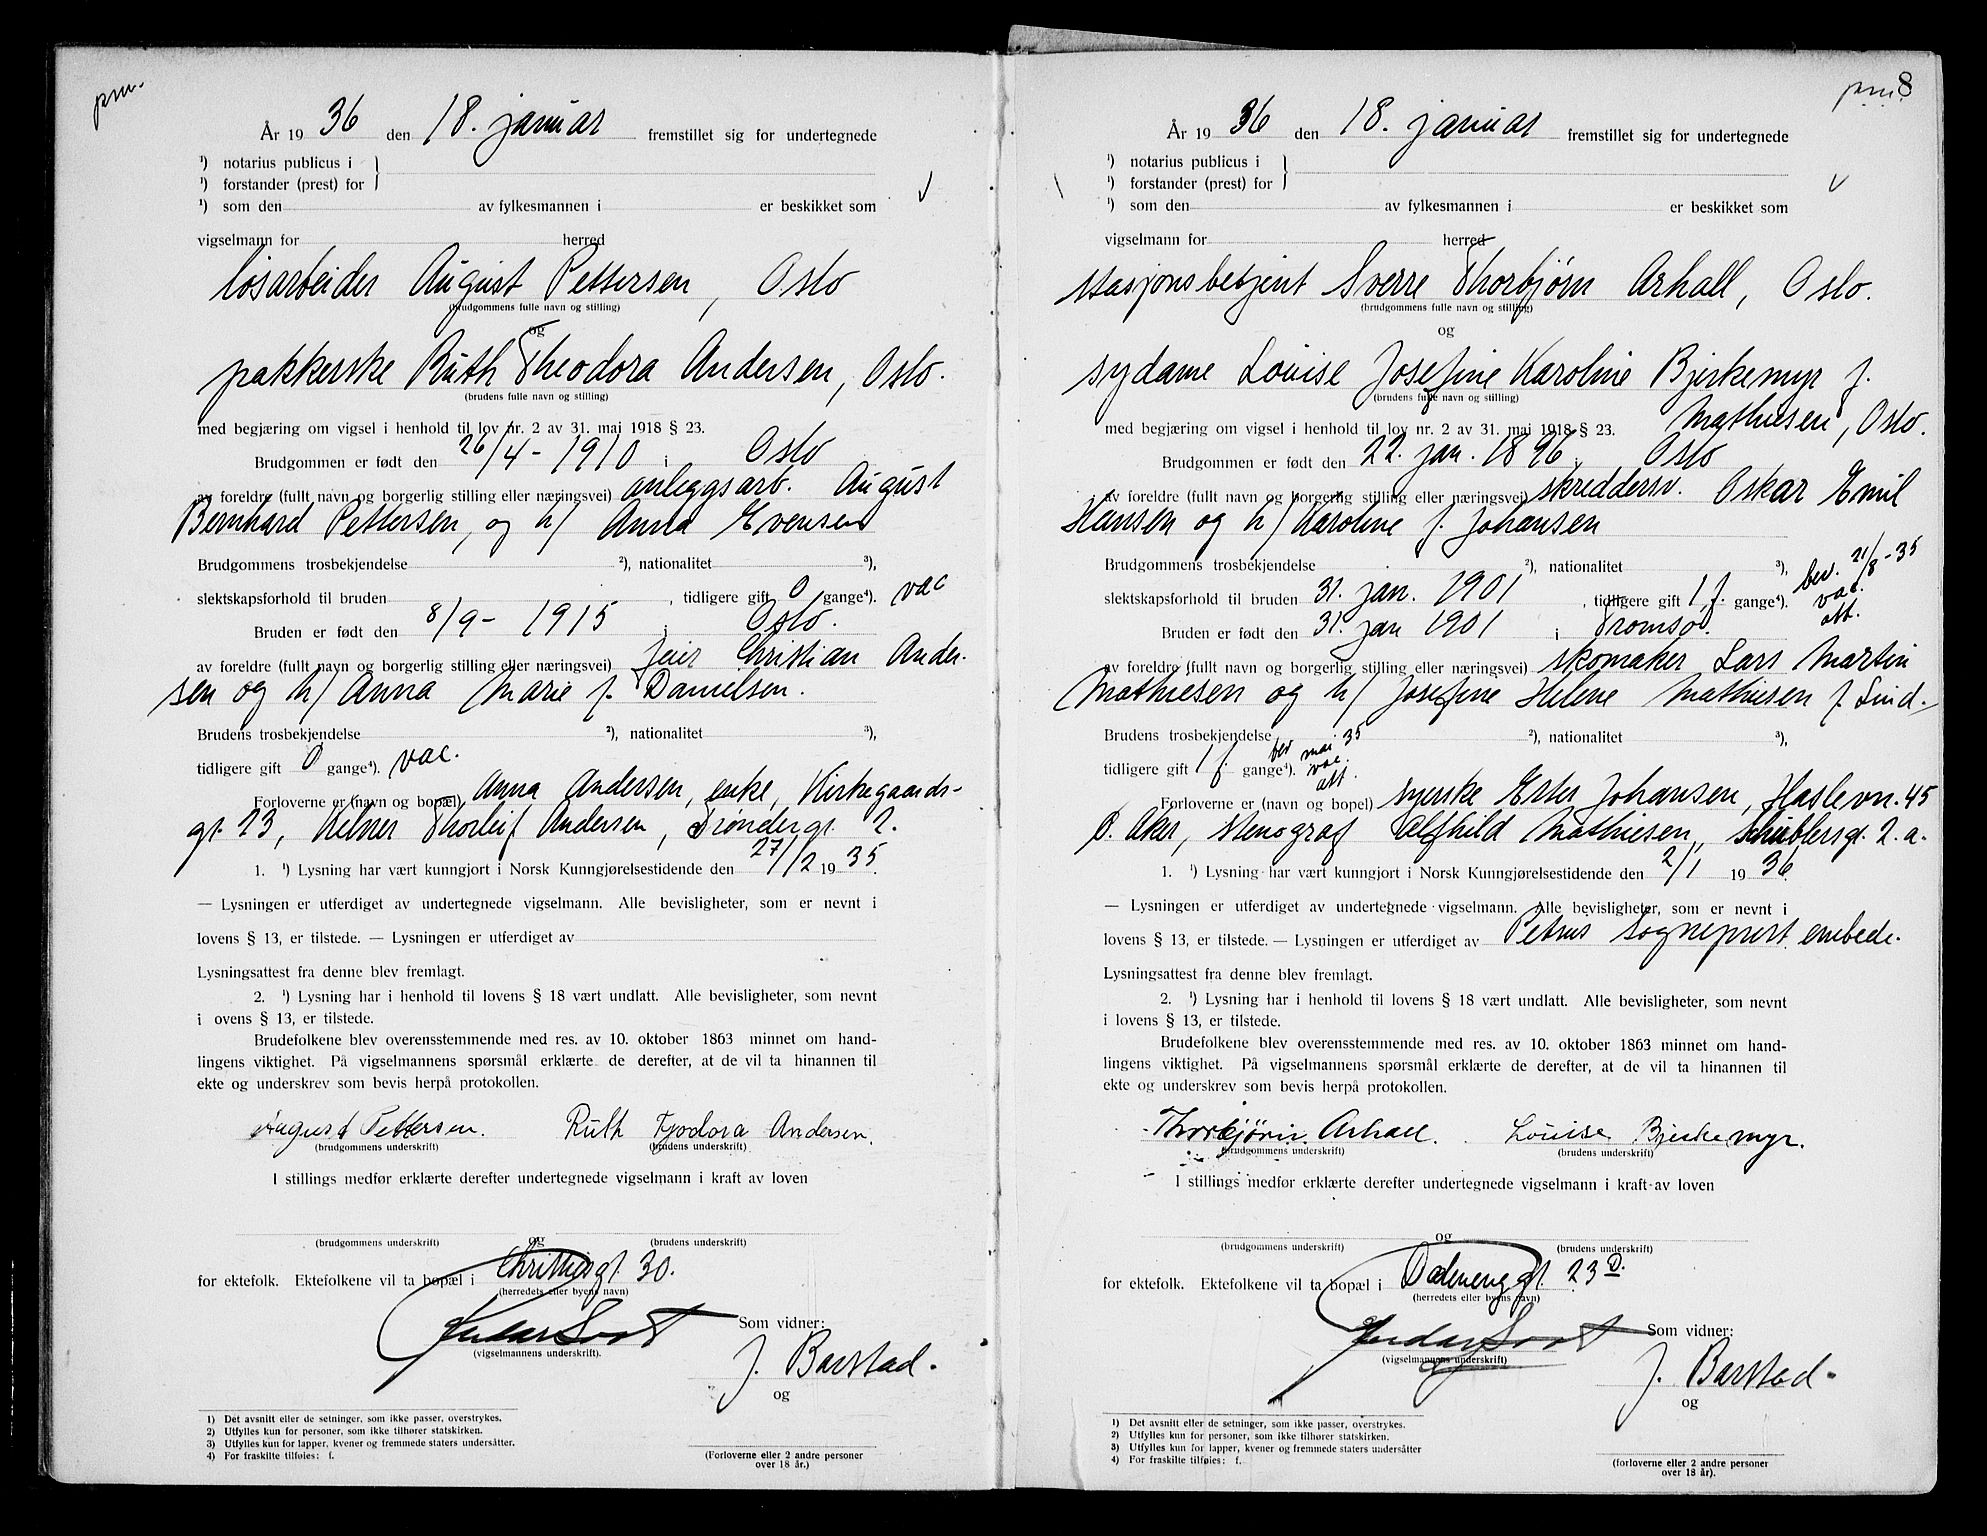 pm.
År 19 36 den 18. januar fremstillet sig for undertegnede
¹) notarius publicus i
¹) forstander (prest) for
¹) som den av fylkesmannen i er beskikket som
vigselmann for herred
løsarbeider August Pettersen, Oslo
(brudgommens fulle navn og stilling)
og
pakkerske Ruth Theodora Andersen, Oslo.
(brudens fulle navn og stilling)
med begjæring om vigsel i henhold til lov nr. 2 av 31. mai 1918 § 23.
Brudgommen er født den 26/4 - 1910 i Oslo
av foreldre (fullt navn og borgerlig stilling eller næringsvei) anleggsarb. August
Bernhard Pettersen, og h/ Anna Evensen
Brudgommens trosbekjendelse ²), nationalitet ³),
slektskapsforhold til bruden , tidligere gift 0 gange⁴). vac
Bruden er født den 8/9 - 1915 i Oslo.
av foreldre (fullt navn og borgerlig stilling eller næringsvei) feier Christian Ander-
sen og h/ Anna Marie f. Danielsen.
Brudens trosbekjendelse ²), nationalitet ³),
tidligere gift 0 gange⁴). vac.
Forloverne er (navn og bopæl) Anna Andersen, enke, Kirkegaards-
gt. 23, Thorleif Andersen, Trøndergt. 2.
1. ¹) Lysning har vært kunngjort i Norsk Kunngjørelsestidende den 27/12 19 35.
— Lysningen er utferdiget av undertegnede vigselmann. Alle bevisligheter, som er nevnt i
lovens § 13, er tilstede. — Lysningen er utferdiget av
Lysningsattest fra denne blev fremlagt.
2. ¹) Lysning har i henhold til lovens § 18 vært undlatt. Alle bevisligheter, som nevnt
i ovens § 13, er tilstede.
Brudefolkene blev overensstemmende med res. av 10. oktober 1863 minnet om hand-
lingens viktighet. På vigselmannens spørsmål erklærte de derefter, at de vil ta hinannen til
ekte og underskrev som bevis herpå protokollen.
August Pettersen. Ruth Tjodora Andersen.
(brudgommens underskrift) (brudens underskrift)
I stillings medfør erklærte derefter undertegnede vigselmann i kraft av loven
og
(brudgommens underskrift) (brudens underskrift)
for ektefolk. Ektefolkene vil ta bopæl i Christiesgt. 30.
(herredets eller byens navn)
Som vidner:
(vigselmannens underskrift).
J. Barstad.
og
1) Det avsnitt eller de setninger, som ikke passer, overstrykes.
2) Utfylles kun for personer, som ikke tilhører statskirken.
3) Utfylles kun for lapper, kvener og fremmede staters undersåtter.
4) For fraskilte tilføies: f.
(Forloverne eller 2 andre personer
over 18 år.)
pm. 8
År 19 36 den 18. januar fremstillet sig for undertegnede
¹) notarius publicus i
¹) forstander (prest) for
¹) som den av fylkesmannen i er beskikket som
vigselmann for herred
stasjonsbetjent Sverre Thorbjørn Arhall, Oslo.
(brudgommens fulle navn og stilling)
og
sydame Louise Josefine Karoline Bjerkemyr f.
(brudens fulle navn og stilling)
Mathiesen, Oslo.
med begjæring om vigsel i henhold til lov nr. 2 av 31. mai 1918 § 23.
Brudgommen er født den 22. jan. 1896 i Oslo
av foreldre (fullt navn og borgerlig stilling eller næringsvei) skreddersv. Oskar Emil
Hansen og h/ Karoline f. Johansen
Brudgommens trosbekjendelse ²), nationalitet ³), bev. 21/8 - 35
slektskapsforhold til bruden 31. jan. 1901 , tidligere gift 1 f. gange⁴). vac.
att.
Bruden er født den 31. jan 1901 i Tromsø.
av foreldre (fullt navn og borgerlig stilling eller næringsvei) skomaker Lars Martin
Mathiesen og h/ Josefine Helene Mathiesen f. Lind-
Brudens trosbekjendelse ²), nationalitet ³),
tidligere gift 1 f. gange⁴). bev mai 35
vac.
att.
Forloverne er (navn og bopel) syerske Ester Johansen, Haslevn. 45
Ø. Aker, stenograf Alfhild Mathiesen, Schüblersgt. 2. a.
1. ¹) Lysning har vært kunngjort i Norsk Kunngjørelsestidende den 2/1 19 36.
— Lysningen er utferdiget av undertegnede vigselmann. Alle bevisligheter, som er nevnt i
lovens § 13, er tilstede. — Lysningen er utferdiget av Petrus Sogneprest embede.
Lysningsattest fra denne blev fremlagt.
2. ¹) Lysning har i henhold til lovens § 18 vært undlatt. Alle bevisligheter, som nevnt
i lovens § 13, er tilstede.
Brudefolkene blev overensstemmende med res. av 10. oktober 1863 minnet om hand-
lingens viktighet. På vigselmannens spørsmål erklærte de derefter, at de vil ta hinannen til
ekte og underskrev som bevis herpå protokollen.
Thorbjørn Arhall. Louise Bjerkemyr.
(brudgommens underskrift) (brudens underskrift)
I stillings medfør erklærte derefter undertegnede vigselmann i kraft av loven
og
(brudgommens underskrift) (brudens underskrift)
for ektefolk. Ektefolkene vil ta bopæl i Dælenenggt. 23 D.
(herredets eller byens navn)
Som vidner:
(vigselmannens underskrift)
J. Barstad.
og
1) Det avsnitt eller de setninger, som ikke passer, overstrykes.
2) Utfylles kun for personer, som ikke tilhører statskirken.
3) Utfylles kun for lapper, kvener og fremmede staters undersåtter
4) For fraskilte tilføies: f.
(forloverne eller 2 andre personer
over 18 år).